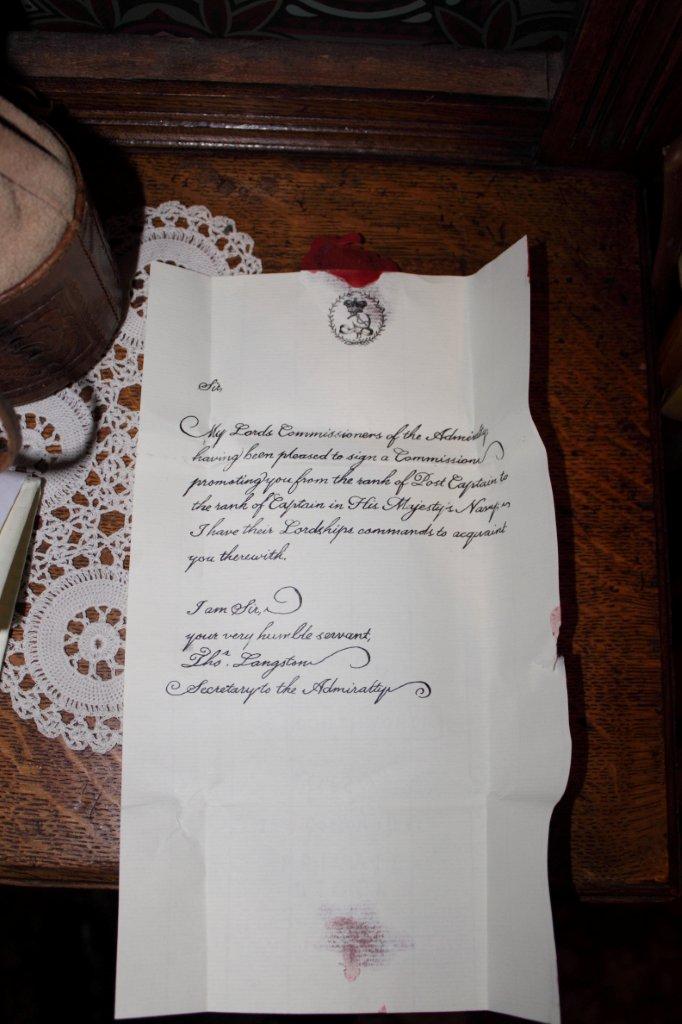 Sir,
My Lords Commissioners of the Admiralty
having been pleased to sign a Commission
promoting you from the rank of Post Captain to
the rank of Captain in His Majesty's Navy,
I have their Lordships commands to acquaint
you therewith.
I am Sir,
your very humble servant,
Thos. Langston
Secretary to the Admiralty